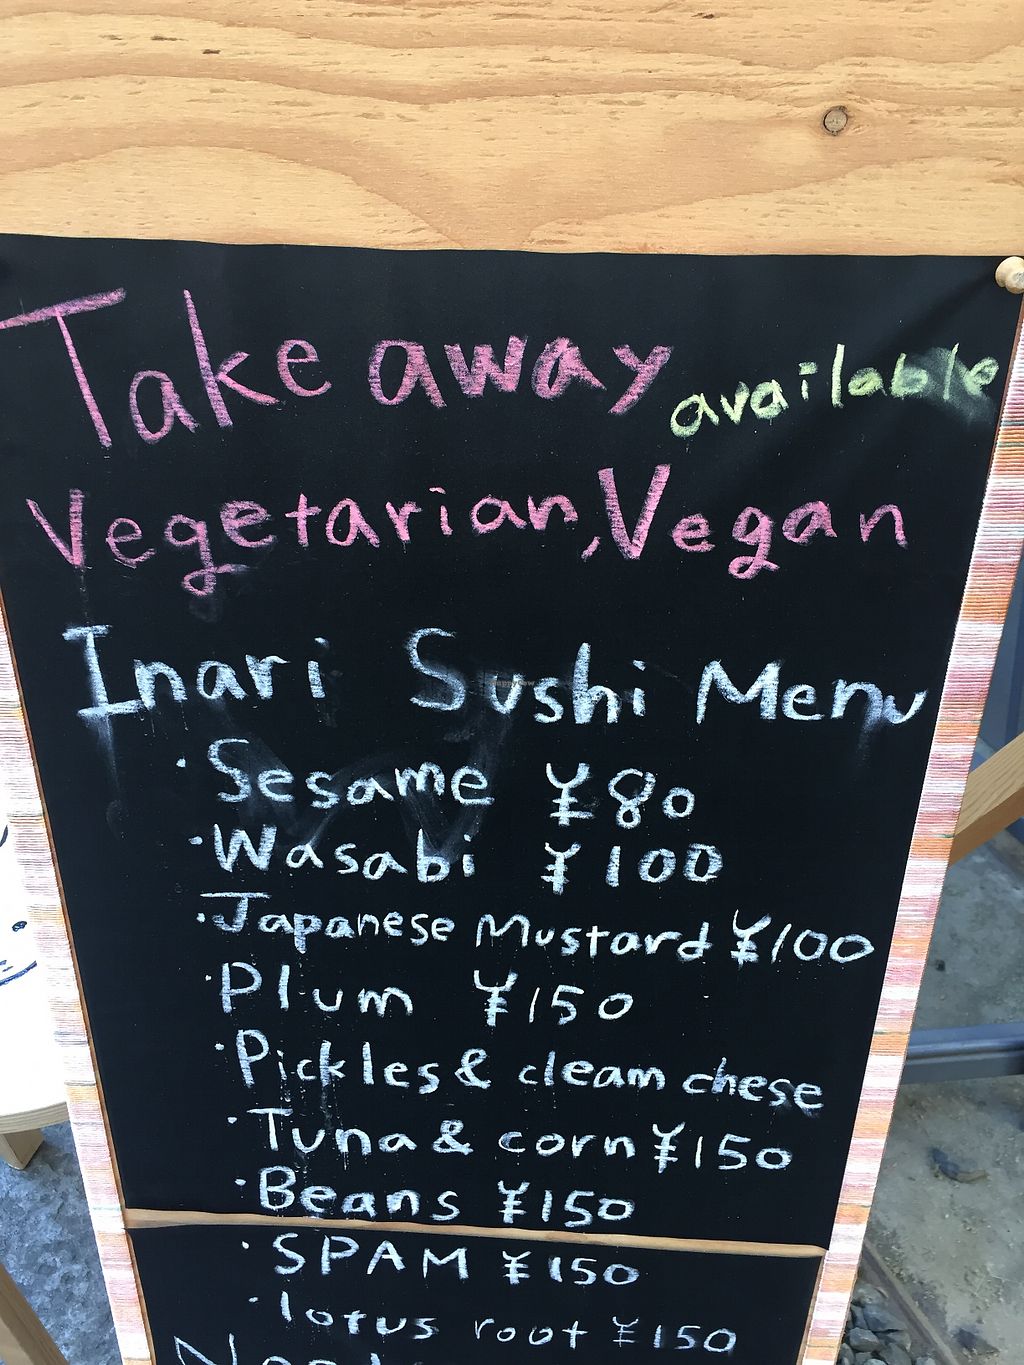 Take away available
Vegetarian, Vegan
Inari Sushi Menu
· Sesame ¥80
· Wasabi ¥100
· Japanese Mustard ¥100
· Plum ¥150
· Pickles & cleam chese
· Tuna & corn ¥150
· Beans ¥150
· SPAM ¥150
· lotus root ¥150